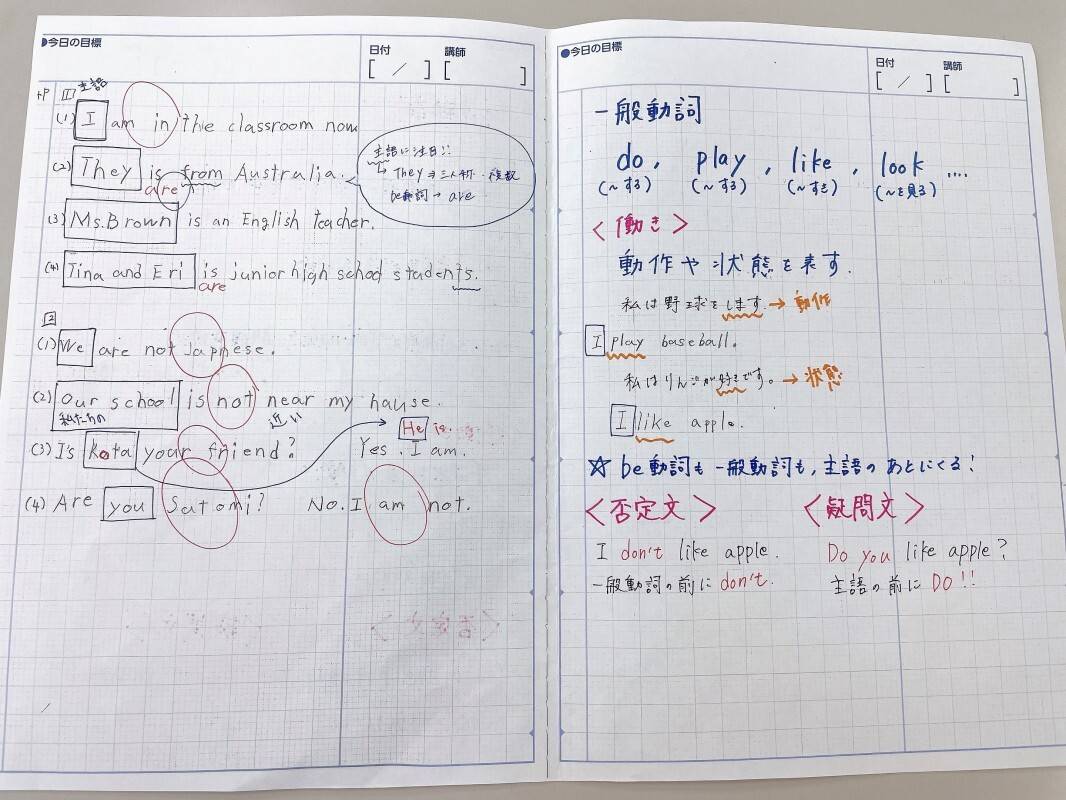 ●今日の目標
日付
[ / ]
講師
[ ]
1 主語
(1) I am in the classroom now
(2) They is from Australia.
are
主語に注目!!
↳ They ⇒ 三人称・複数
be動詞 → are
(3) Ms.Brown is an English teacher.
(4) Tina and Eri is junior high school students.
are
2
(1) We are not Japnese.
(2) Our school is not near my hause.
私たちの
近い
He is.
(3) I's kota your friend? Yes. I am.
(4) Are you Satomi? No. I am not.
●今日の目標
日付
[ / ]
講師
[ ]
一般動詞
do, play, like, look ....
(~する) (~する) (~すき) (~を見る)
<働き>
動作や状態を表す.
私は野球をします. → 動作
I play baseball.
私はりんごが好きです。 → 状態
I like apple.
☆ be動詞も一般動詞も,主語のあとにくる!
<否定文> <疑問文>
I don't like apple. Do you like apple?
一般動詞の前に don't. 主語の前に DO!!